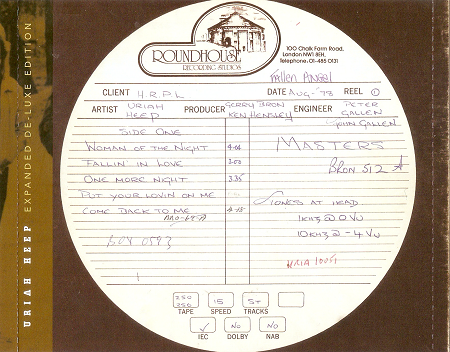 URIAH HEEP EXPANDED DE-LUXE EDITION
ROUNDHOUSE
RECORDING STUDIOS
100 Chalk Farm Road,
London NW1 8EH.
Telephone: 01-485 0131
Fallen Angel
CLIENT H.R.P.L DATE AUG-'78 REEL 1
ARTIST URIAH HEEP PRODUCER GERRY BRON KEN HENSLEY ENGINEER PETER GALLEN JOHN GALLEN
SIDE ONE
WOMAN OF THE NIGHT 4.06 MASTERS
FALLIN' IN LOVE 3.00 BRON 512 A
ONE MORE NIGHT 3.35
PUT YOUR LOVIN ON ME TONES AT HEAD
COME BACK TO ME 4.15
1KHZ @ 0 VU
10KHZ @ -4 VU
250
256 15 ST
TAPE SPEED TRACKS
✓ NO NO
IEC DOLBY NAB